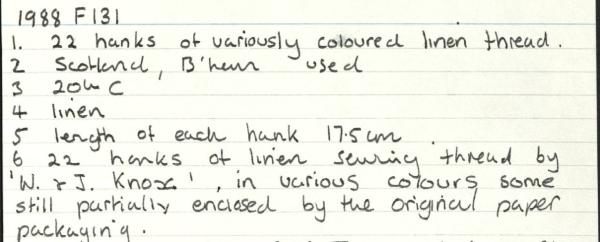 1988 F131
1. 22 hanks of variously coloured linen thread.
2 Scotland, B'ham used
3 20th C
4 linen
5 length of each hank 17.5cm
6 22 hanks of linen sewing thread by
'W. & J. Knox', in various colours some
still partially enclosed by the original paper
packaging.